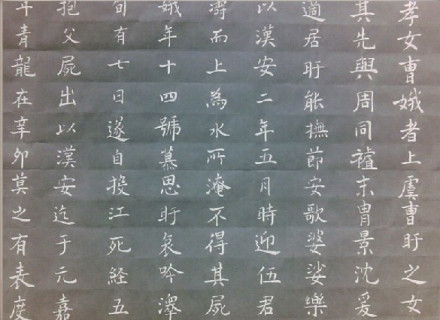 孝女曹娥者上虞曹盱之女
其先與周同末胄景沈爰
適居盱能撫節安歌婆娑樂
以漢安二年五月時迎伍君
濤而上為水所淹不得其屍
娥年十四號慕思盱哀吟澤
旬有七日遂自投江死経五
抱父屍出以漢安迄于元嘉
年青龍在辛卯莫之有表度